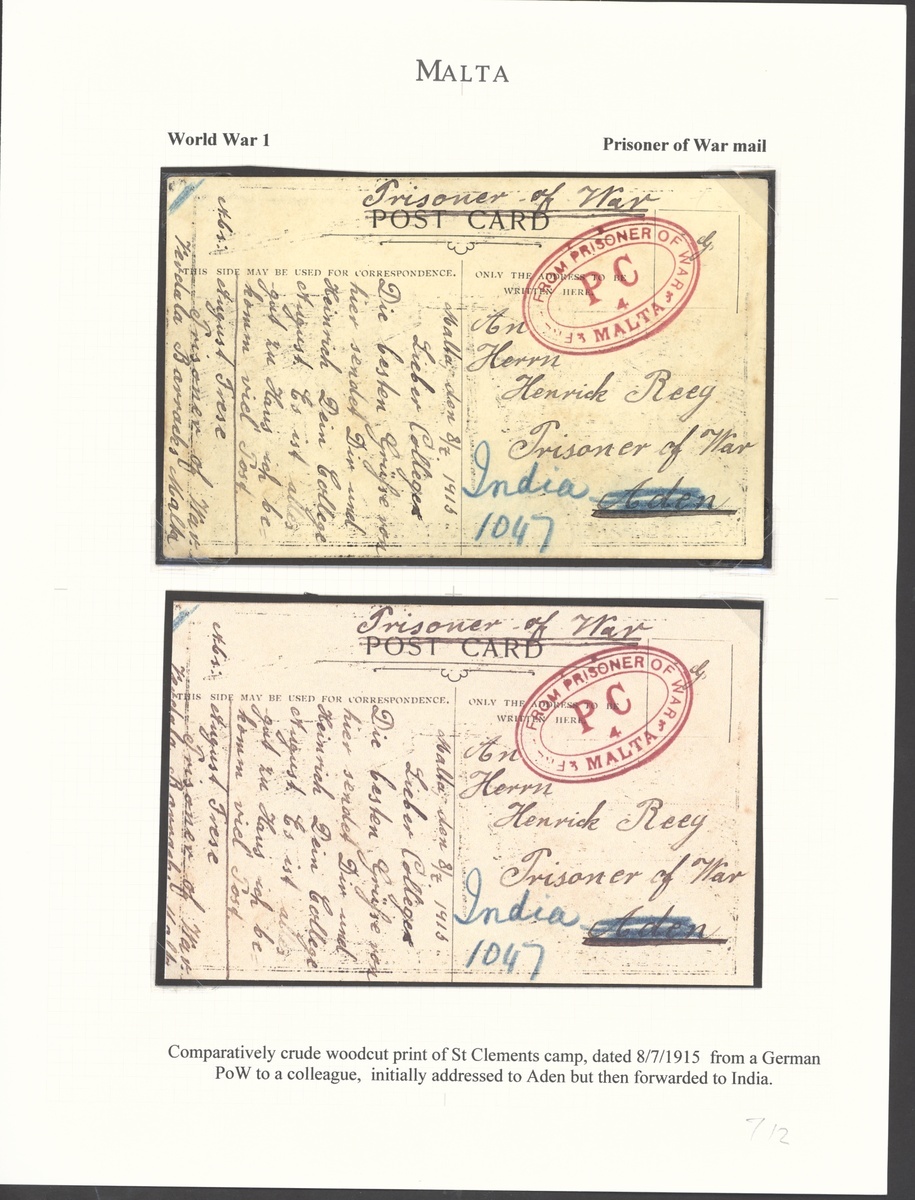 MALTA
World War 1
Prisoner of War mail
Prisoner of War
POST CARD
THIS SIDE MAY BE USED FOR CORRESPONDENCE.
ONLY THE ADDRESS TO BE
WRITTEN HERE
FROM PRISONER OF WAR
P C
4
MALTA
Malta, den 8/7 1915.
Lieber College
Die besten Grüße von
hier sendet Dir und
Heinrich Dein College
August Es ist alles
gut zu Haus ich be-
komm viel Post
Abs:
August Frese
Prisoner of War
Verdala Barracks Malta
An
Herrn
Henrick Reey
Prisoner of War
India Aden
1047
Prisoner of War
POST CARD
THIS SIDE MAY BE USED FOR CORRESPONDENCE.
ONLY THE ADDRESS TO BE
WRITTEN HERE
FROM PRISONER OF WAR
P C
4
MALTA
Malta, den 8/7 1915.
Lieber College
Die besten Grüße von
hier sendet Dir und
Heinrich Dein College
August Es ist alles
gut zu Haus ich be-
komm viel Post
Abs:
August Frese
Prisoner of War
Verdala Barracks Malta
An
Herrn
Henrick Reey
Prisoner of War
India Aden
1047
Comparatively crude woodcut print of St Clements camp, dated 8/7/1915 from a German
PoW to a colleague, initially addressed to Aden but then forwarded to India.
7/12